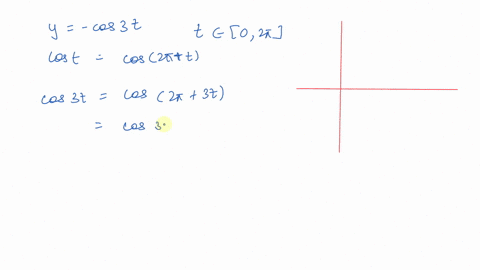 y = -cos 3t t ∈ [0, 2π]
cos t = cos (2π + t)
cos 3t = cos (2π + 3t)
= cos 3